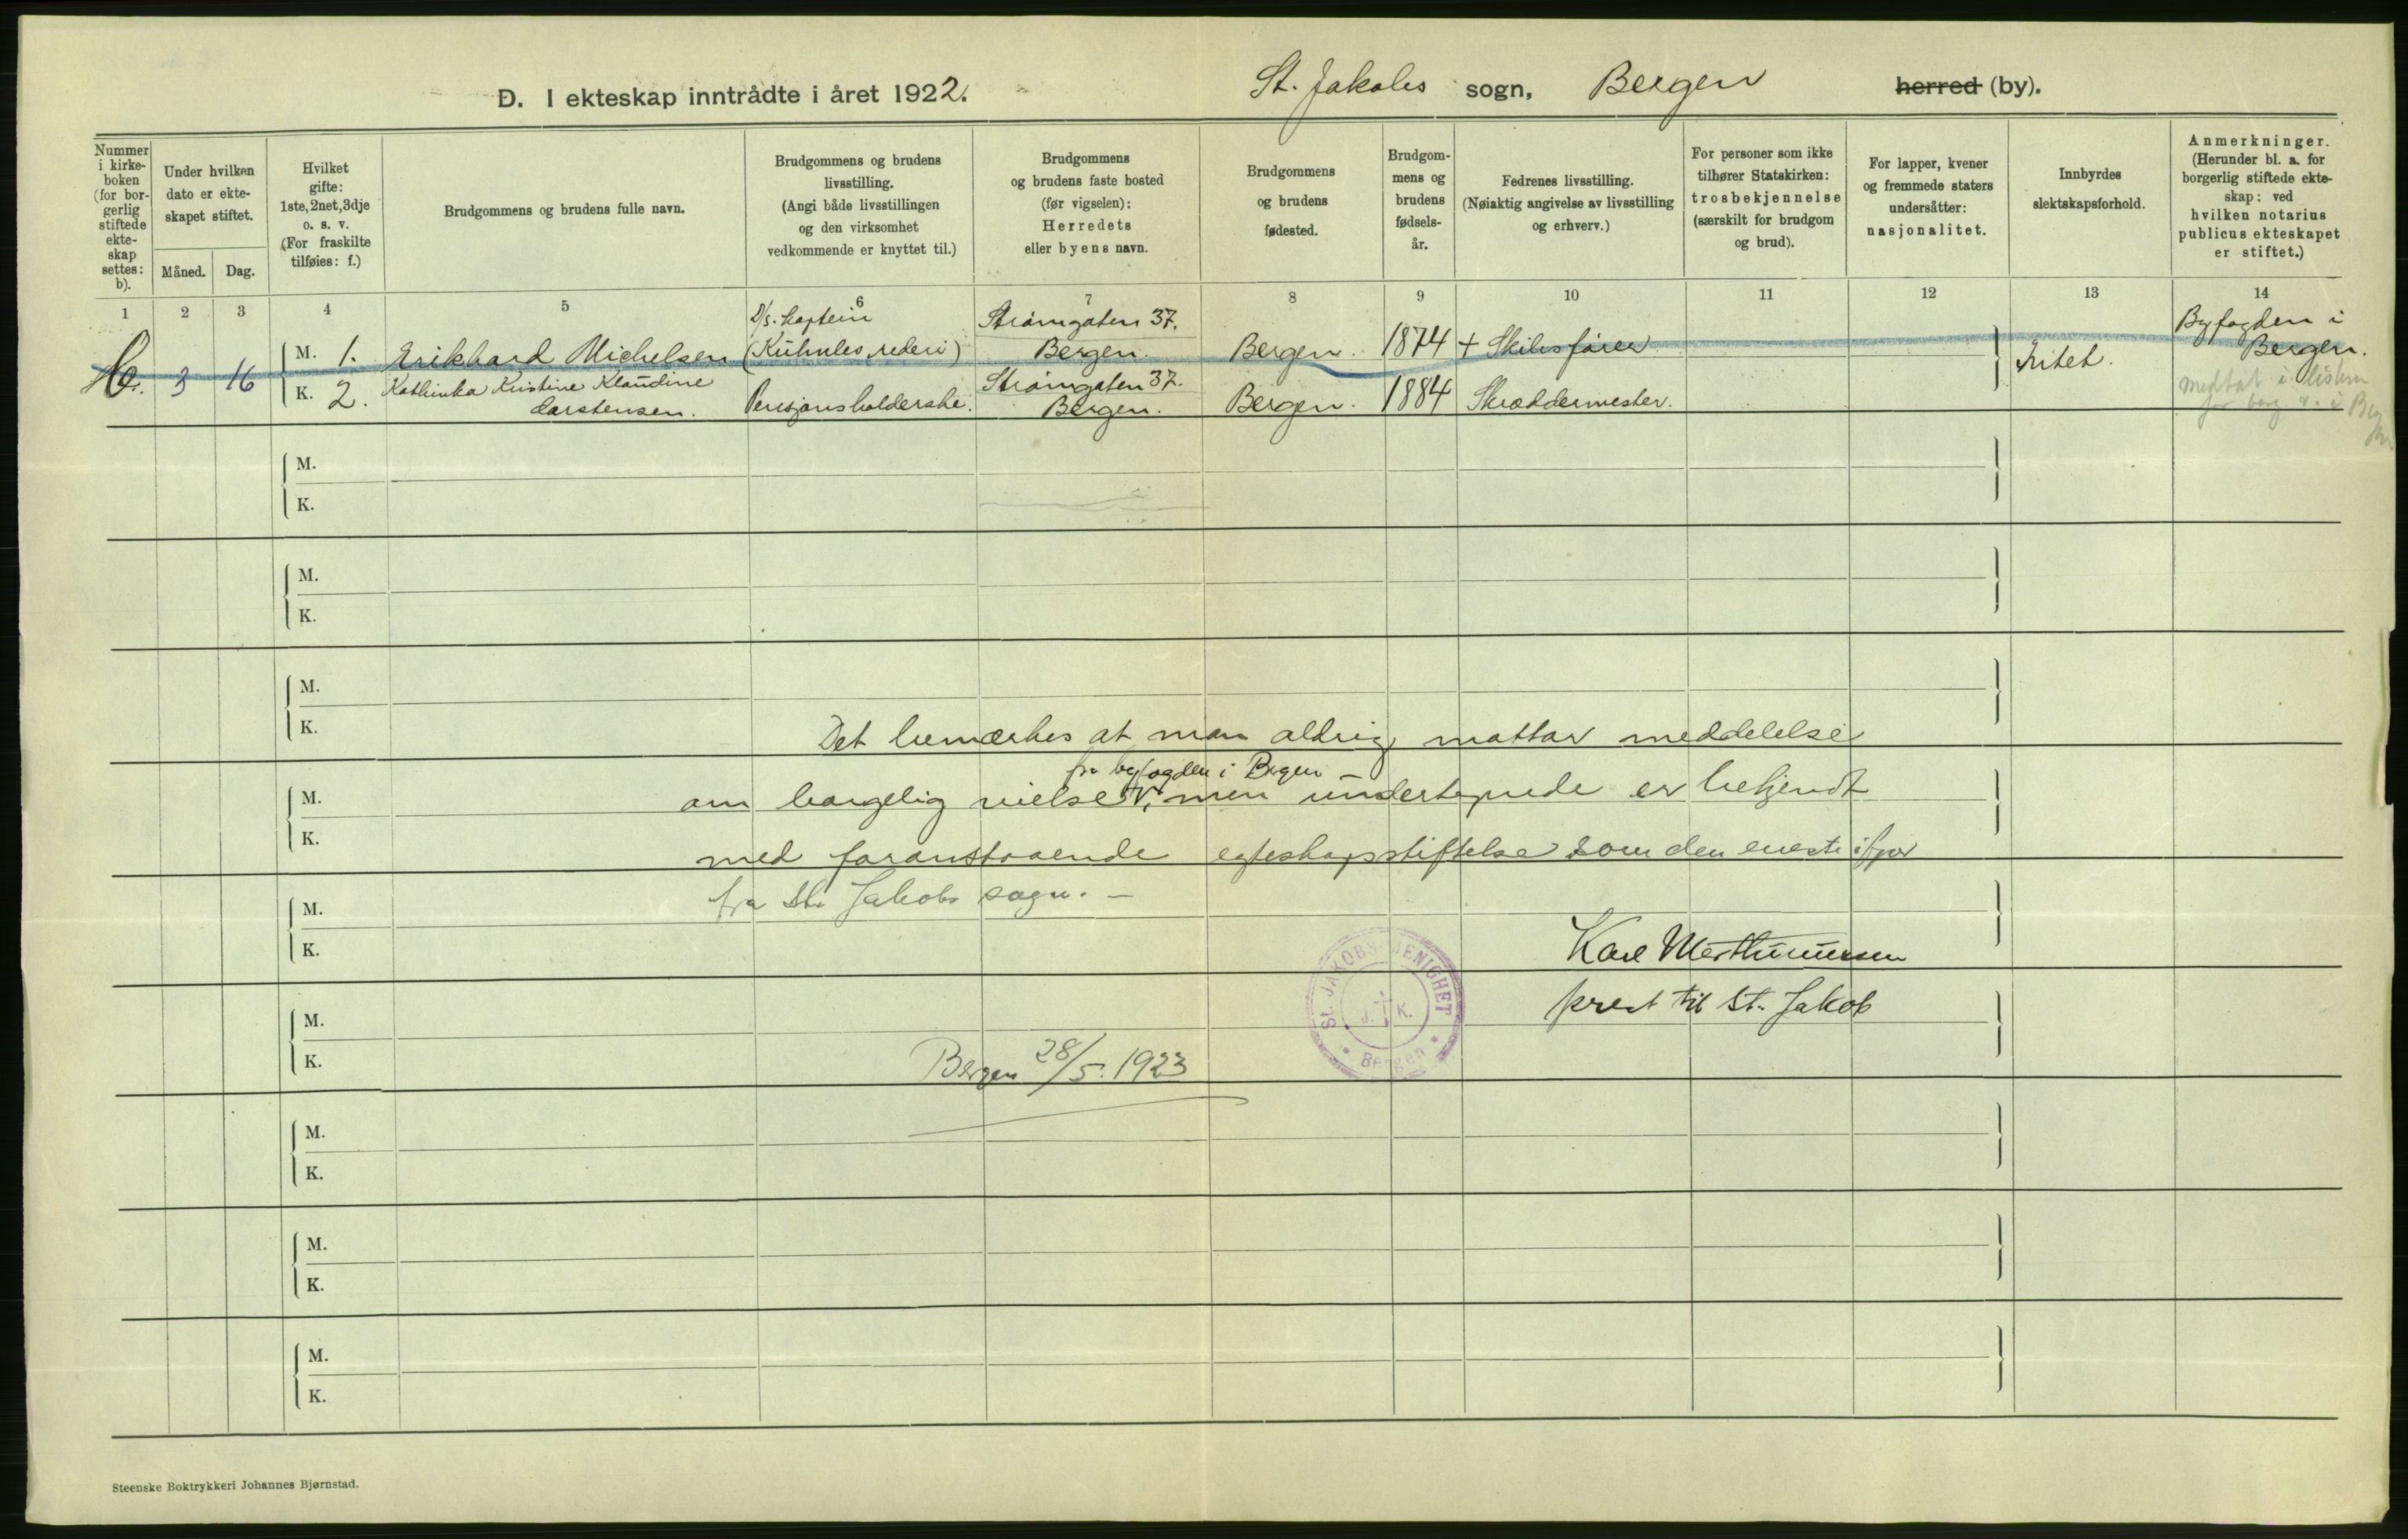 Đ. I ekteskap inntrådte i året 1922.
St. Jakobs sogn, Bergen herred (by).
Nummer i kirke- boken (for bor- gerlig stiftede ekte- skap settes: b).
Under hvilken dato er ekte- skapet stiftet.
Måned. Dag.
Hvilket gifte: 1ste, 2net, 3dje o. s. v. (For fraskilte tilføies: f.)
Brudgommens og brudens fulle navn.
Brudgommens og brudens livsstilling. (Angi både livsstillingen og den virksomhet vedkommende er knyttet til.)
Brudgommens og brudens faste bosted (før vigselen): Herredets eller byens navn.
Brudgommens og brudens fødested.
Brudgom- mens og brudens fødsels- år.
Fedrenes livsstilling. (Nøiaktig angivelse av livsstilling og erhverv.)
For personer som ikke tilhører Statskirken: trosbekjennelse (særskilt for brudgom og brud).
For lapper, kvener og fremmede staters undersåtter: nasjonalitet.
Innbyrdes slektskapsforhold.
Anmerkninger. (Herunder bl. a. for borgerlig stiftede ekte- skap: ved hvilken notarius publicus ekteskapet er stiftet.)
1 2 3 4 5 6 7 8 9 10 11 12 13 14
b. 3 16
M. 1. Erikhard Michelsen D/s. kaptein (Kuhnles rederi) Strømgaten 37. Bergen. Bergen. 1874 + Skibsfører
K. 2. Kathinka Kristine Klaudine Carstensen. Pensjonsholderske. Strømgaten 37. Bergen. Bergen. 1884 Skræddermester.
Intet.
Byfogden i Bergen.
medtat i listen
for borg. v. i Bergen
M.
K.
M.
K.
M.
K.
Det bemærkes at man aldrig mottar meddelelse
fra byfogden i Bergen
M.
om borgelig vielser, men undertegnede er bekjendt
K.
med foranstaaende egteskapsstiftelse som den eneste ifjor
fra St. Jakobs sogn. –
M.
K.
Karl Marthinussen
prest til St. Jakob
St. JAKOBS MENIGHET
J. K.
Bergen
M.
K.
Bergen 28/5. 1923
M.
K.
M.
K.
M.
K.
Steenske Boktrykkeri Johannes Bjørnstad.